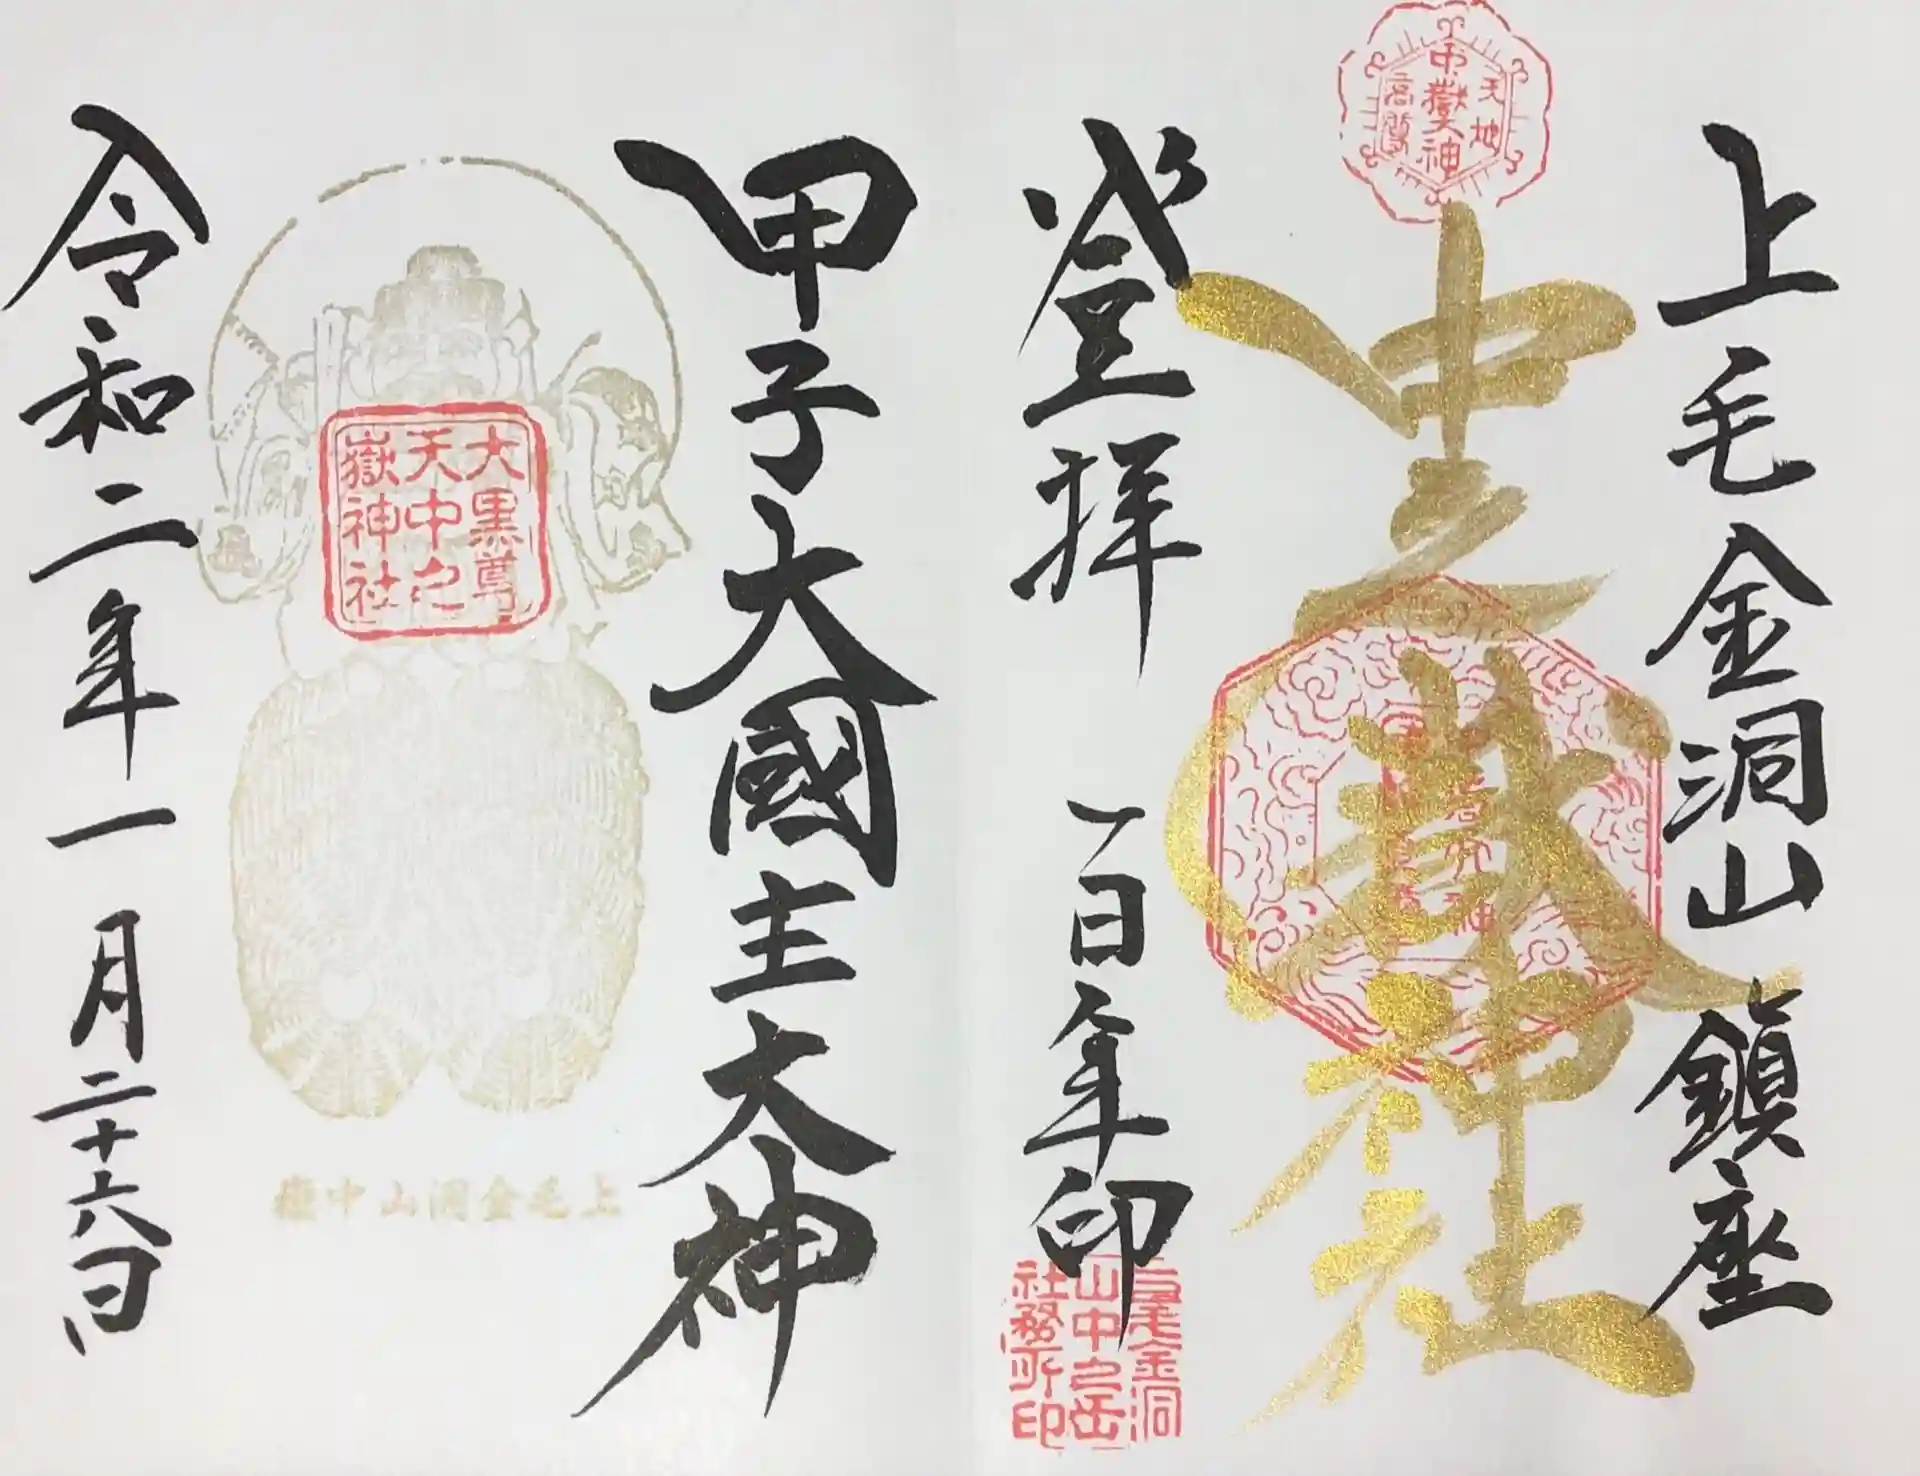 上毛金洞山鎮座
天地
中嶽大神
高尊
中之嶽神社
登拝
一百年印
上毛金洞
山中之岳
社務所印
甲子大國主大神
大黒尊
天中之
嶽神社
上毛金洞山中嶽
令和二年一月二十六日